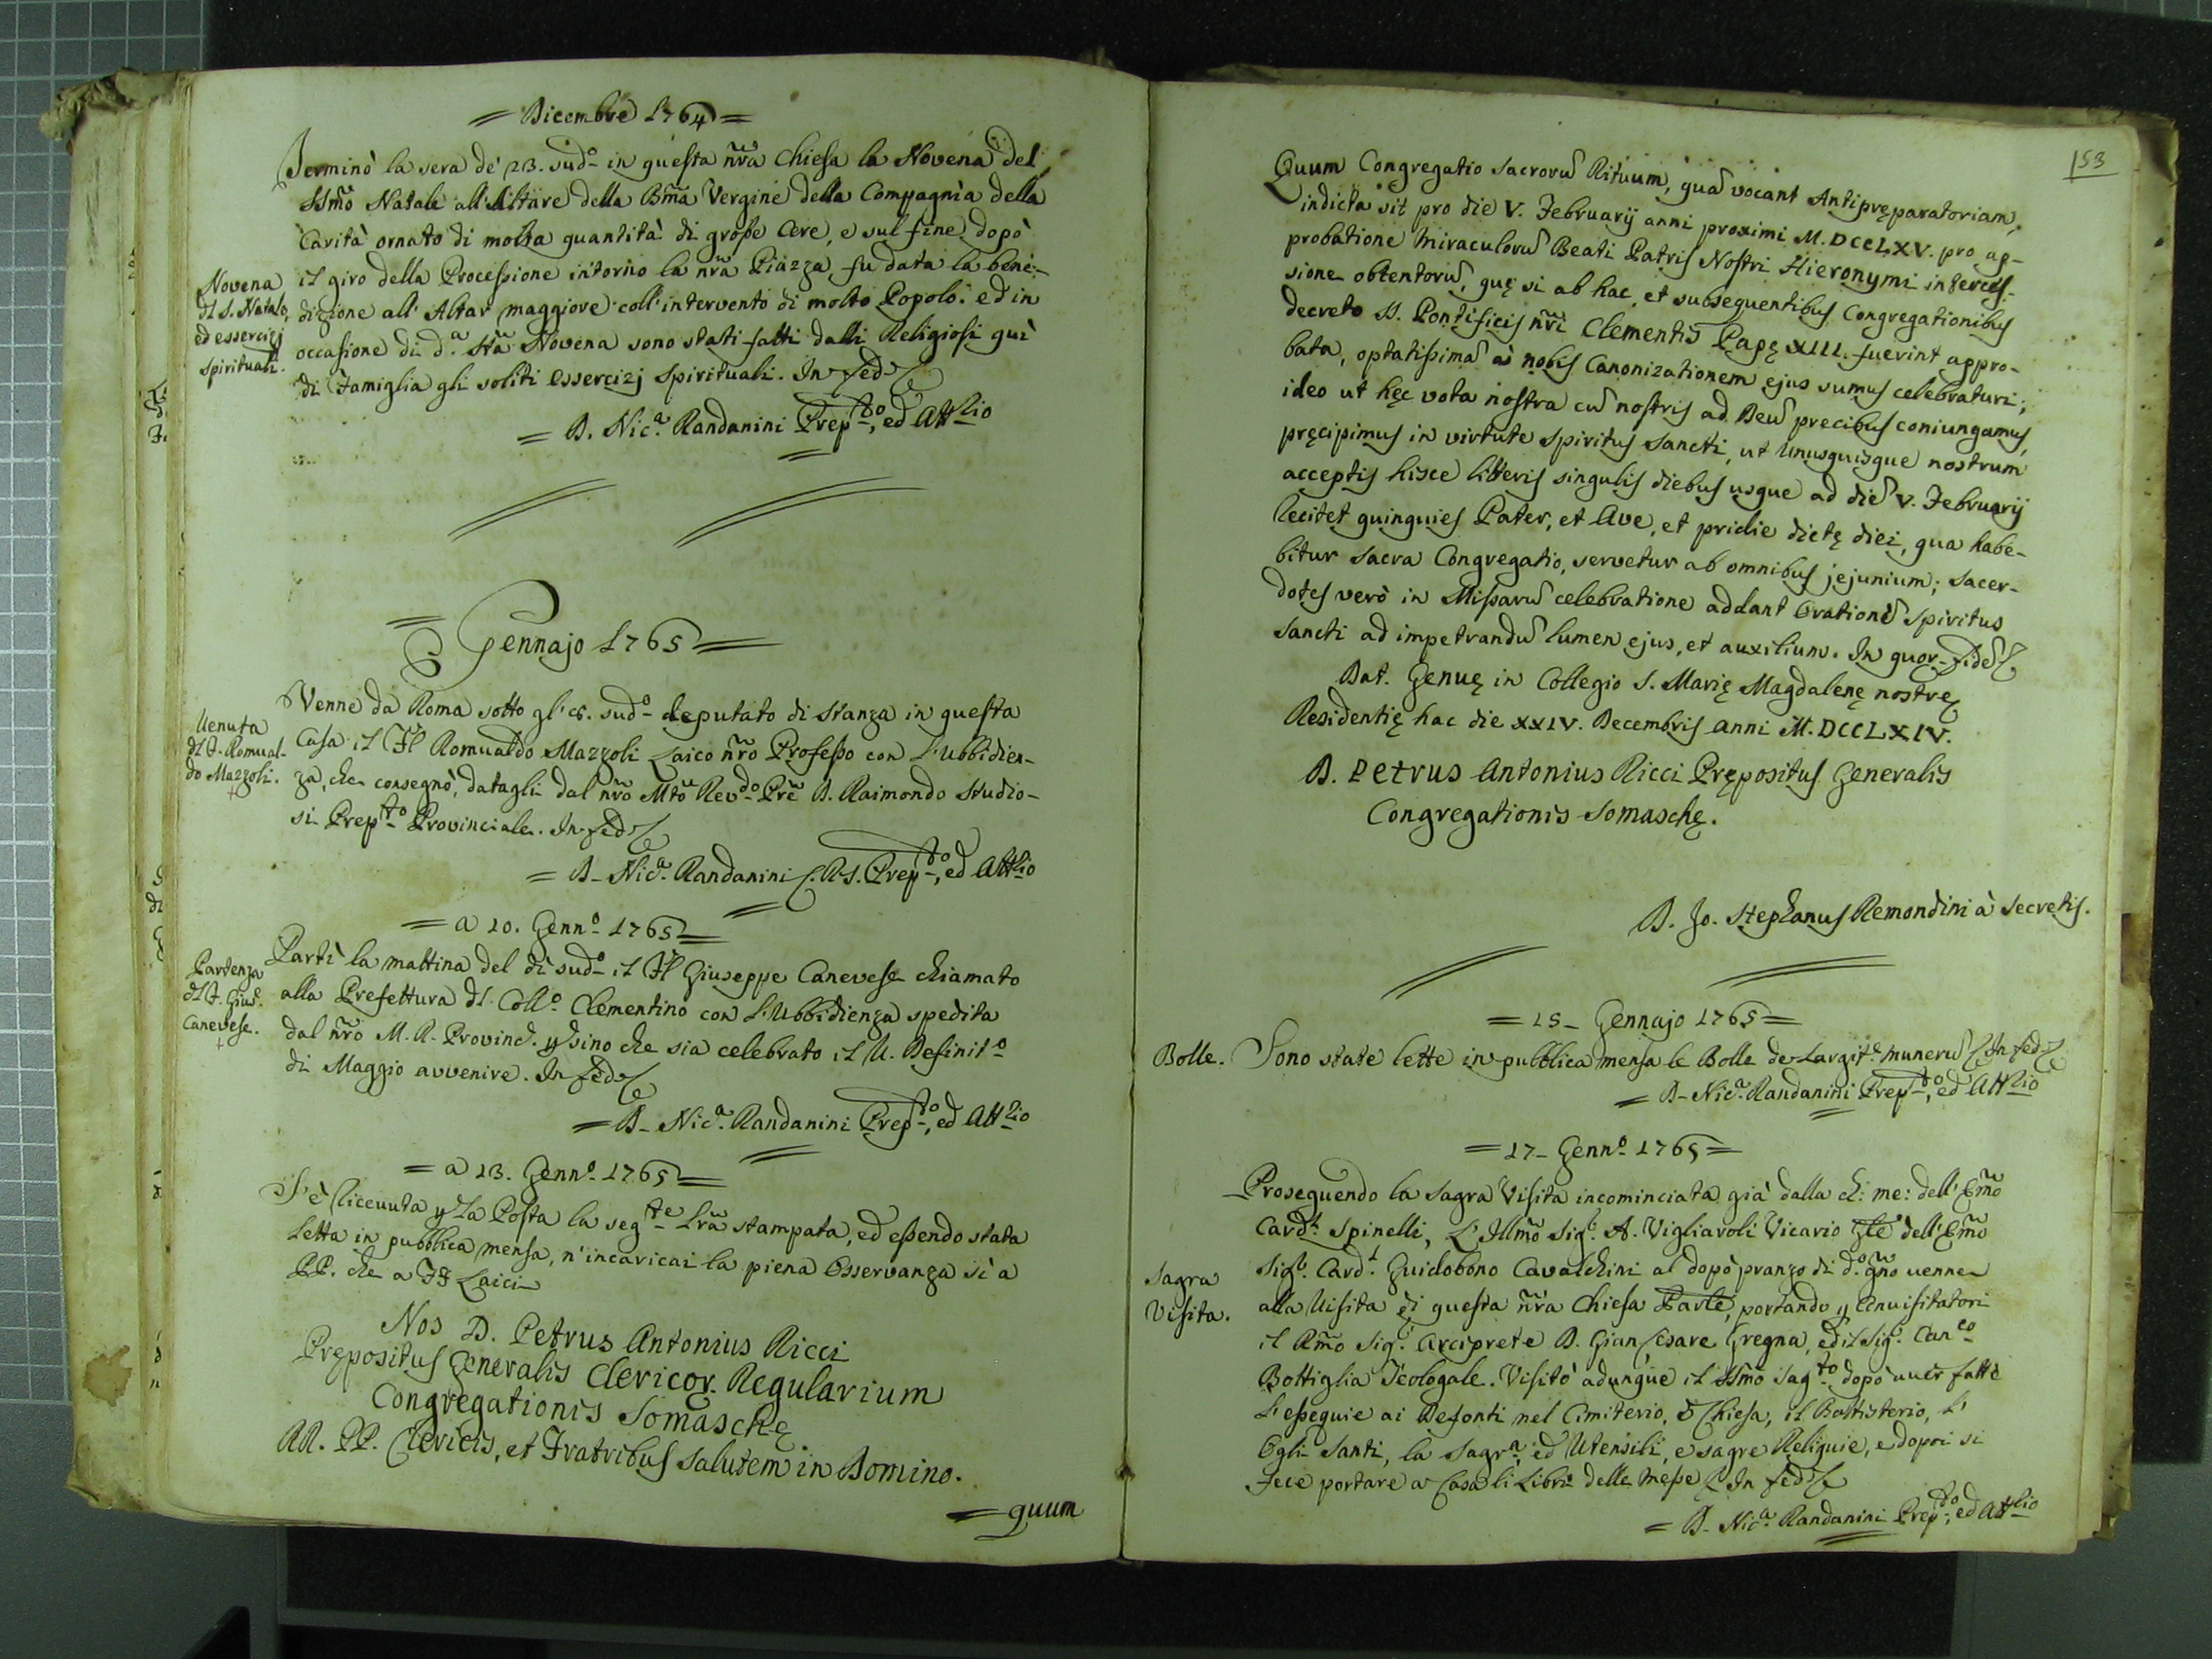 = Dicembre 1764 =
Terminò la sera de' 23. sud.o in questa nr̃a Chiesa la Novena del
SSm̃o Natale all'Altare della Bm̃a Vergine della Compagnia della
Carità ornato di molta quantità di grosse Cere, e sul fine dopò
il giro della Processione intorno la nr̃a Piazza, fu data la bene-
dizione all'Altar maggiore coll'intervento di molto Popolo: ed in
occasione di d.a Novena sono stati fatti dalli Religiosi quì
di Famiglia gli soliti essercizj spirituali. In fed
Novena
dl S. Natale,
ed essercizj
spirituali.
= D. Nic.a Randanini Prep.to, ed Att.rio
= Gennajo 1765 =
Venne da Roma sotto gl'8. sud.o deputato di stanza in questa
Casa il Fl Romualdo Mazzoli Laico nr̃o Professo con l'ubbidien-
za, che consegnò, datagli dal nr̃o Mto Rev.do Prẽ D. Raimondo Studio-
si Prep.to Provinciale. In fed
Venuta
dl F. Romual-
do Mazzoli.
= D. Nic.a Randanini C.R.S. Prep.to, ed Att.rio
= a 10. Genn.o 1765 =
Partì la mattina del dì sud.o il Fl Giuseppe Canevese chiamato
alla Prefettura dl Coll.o Clementino con l'Ubbidienza spedita
dal nr̃o M. R. Provinc. p sino che sia celebrato il V. Definit.o
di Maggio avvenire. In fed
Partenza
dl F. Gius.
Canevese.
= D. Nic.a Randanini Prep.to, ed Att.rio
= a 13. Genn.o 1765 =
S'è ricevuta p la Posta la seg.te Lr̃a stampata, ed essendo stata
letta in pubblica mensa, n'incaricai la piena Osservanza sì a
PP. che a FF Laici
Nos D. Petrus Antonius Ricci
Prępositus Generalis Clericor. Regularium
Congregationis Somaschę
RR. PP. Clericis, et Fratribus salutem in Domino.
= quum
153
Quum Congregatio sacrorũ Rituum, quã vocant Antipręparatoriam,
indicta sit pro die V. Februarij anni proximi M.DCCLXV. pro ap-
probatione miraculorũ Beati Patris Nostri Hieronymi interces-
sione obtentorũ, quę si ab hac, et subsequentibus Congregationibus
decreto SS. Pontificis nr̃i Clementis Papę XIII. fuerint appro-
bata, optatissimã à nobis Canonizationem ejus sumus celebraturi;
ideo ut hęc vota nostra cũ nostris ad Deũ precibus coniungamus,
pręcipimus in virtute Spiritus Sancti, ut unusquisque nostrum
acceptis hisce litteris singulis diebus usque ad diẽ V. Februarij
recitet quinquies Pater, et Ave, et pridie dictę diei, qua habe-
bitur Sacra Congregatio, servetur ab omnibus jejunium; Sacer-
dotes verò in Missarũ celebratione addant Orationẽ Spiritus
Sancti ad impetrandũ lumen ejus, et auxilium. In quor. fidẽ
Dat. Genuę in Collegio S. Marię Magdalenę nostrę
Residentię hac die XXIV. Decembris anni M.DCCLXIV.
D. Petrus Antonius Ricci Prępositus Generalis
Congregationis Somaschę.
D. Jo. Stephanus Remondini à Secretis.
= 15 - Gennajo 1765 =
Bolle. Sono state lette in pubblica mensa le Bolle de Largit.e munerũ In fed
= D. Nic.a Randanini Prep.to, ed Att.rio
= 17 - Genn.o 1765 =
Proseguendo la Sagra Visita incominciata già dalla ch: me: dell'Em̃o
Card.l Spinelli, L'Illm̃o Sig.r A. Vigliaroli Vicario Gl̃e dell'Em̃o
Sig.r Card.l Guidobono Cavalchini al dopò pranzo di d.o gño venne
alla Visita di questa nr̃a Chiesa Parlẽ, portando p Convisitatori
il Rm̃o Sig.r Arciprete D. Gian Cesare Gregna, ed il Sig.r Can.co
Bottiglia Teologale. Visitò adunque il SSm̃o Sag.to dopò aver fatte
l'essequie ai Defonti nel Cimiterio, e Chiesa, il Battisterio, l'
Ogli Santi, la Sagr.a ed Utensili, e sagre Reliquie, e dopoi si
fece portare a Casa li Libri delle Messe In fed
Sagra
Visita.
= D. Nic.a Randanini Prep.to, ed Att.rio